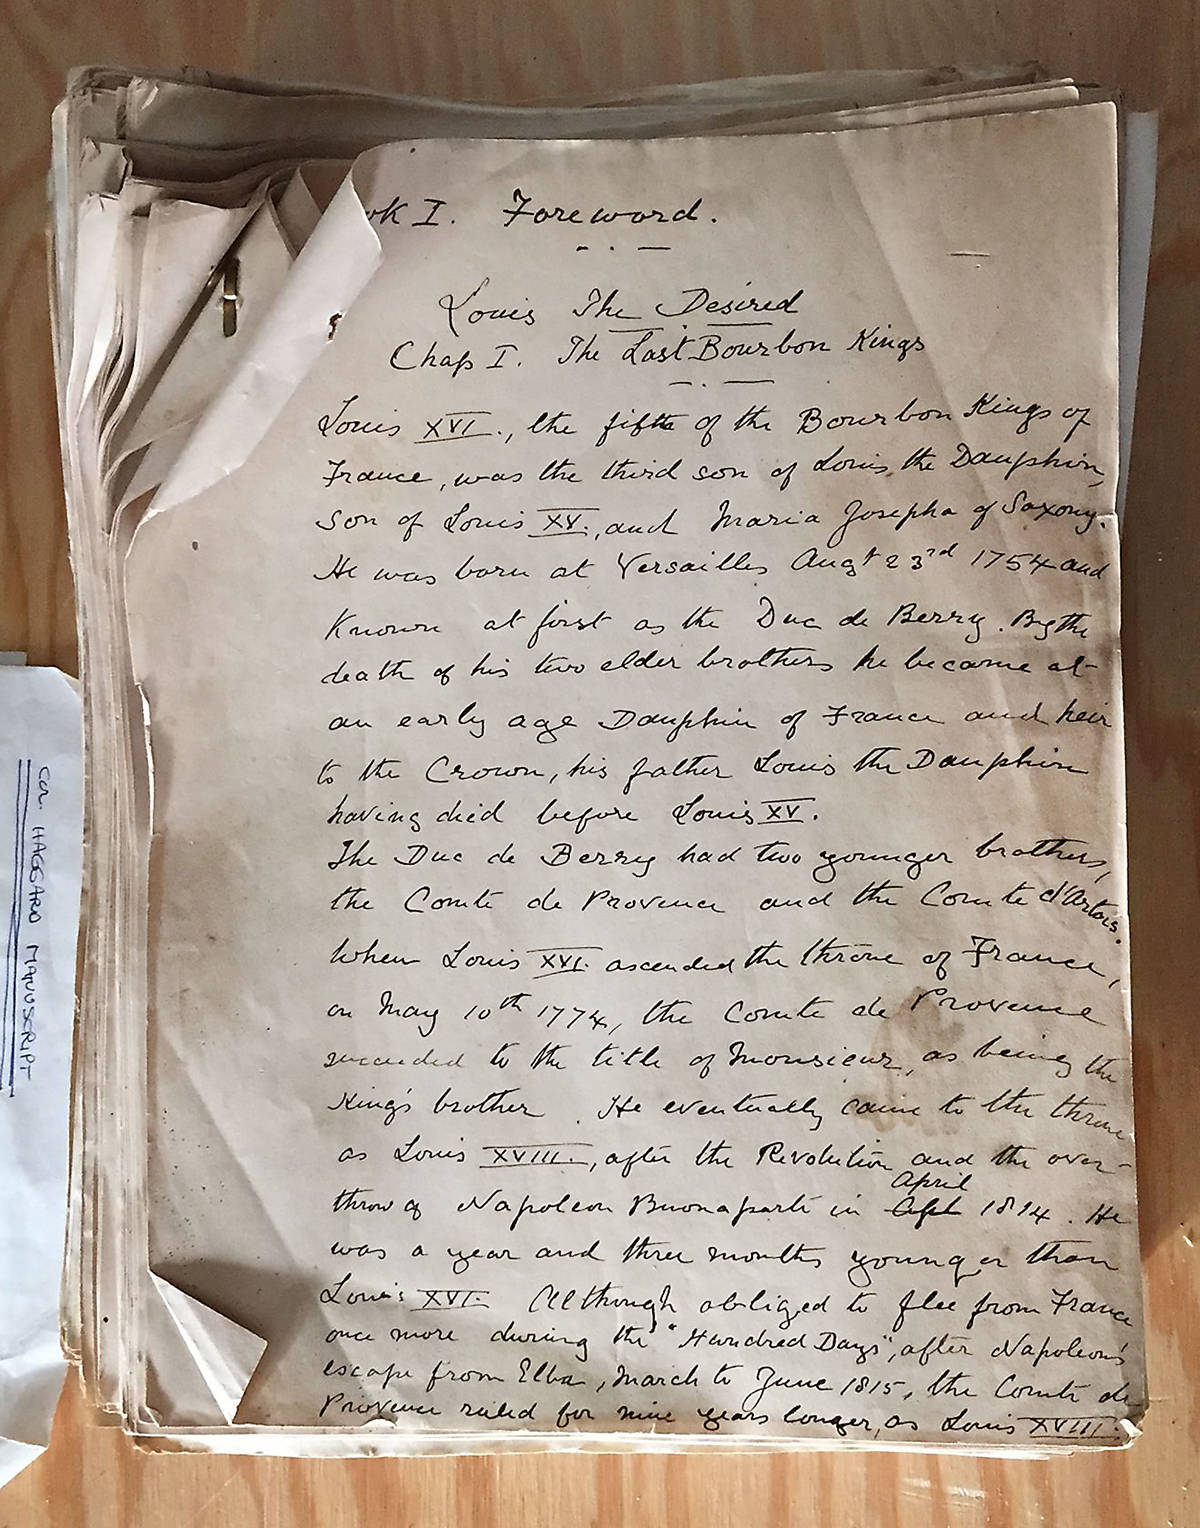 ok I. Foreword.
Louis The Desired
Chap I. The Last Bourbon Kings
Louis XVI., the fifth of the Bourbon Kings of
France, was the third son of Louis, the Dauphin,
son of Louis XV., and Maria Josepha of Saxony.
He was born at Versailles Augt 23rd 1754 and
Known at first as the Duc de Berry. By the
death of his two elder brothers he became at
an early age Dauphin of France and heir
to the Crown, his father Louis the Dauphin
having died before Louis XV.
The Duc de Berry had two younger brothers,
the Comte de Provence and the Comte d'Artois.
When Louis XVI. ascended the throne of France,
on May 10th 1774, the Comte de Provence
succeeded to the title of Monsieur, as being the
King's brother. He eventually came to the throne
as Louis XVIII., after the Revolution and the over-
April
throw of Napoleon Buonaparte in 1814. He
was a year and three months younger than
Louis XVI. Although obliged to flee from France
once more during the "Hundred Days", after Napoleon's
escape from Elba, March to June 1815, the Comte de
Provence ruled for nine years longer, as Louis XVIII.
Col. HAGGARD MANUSCRIPT